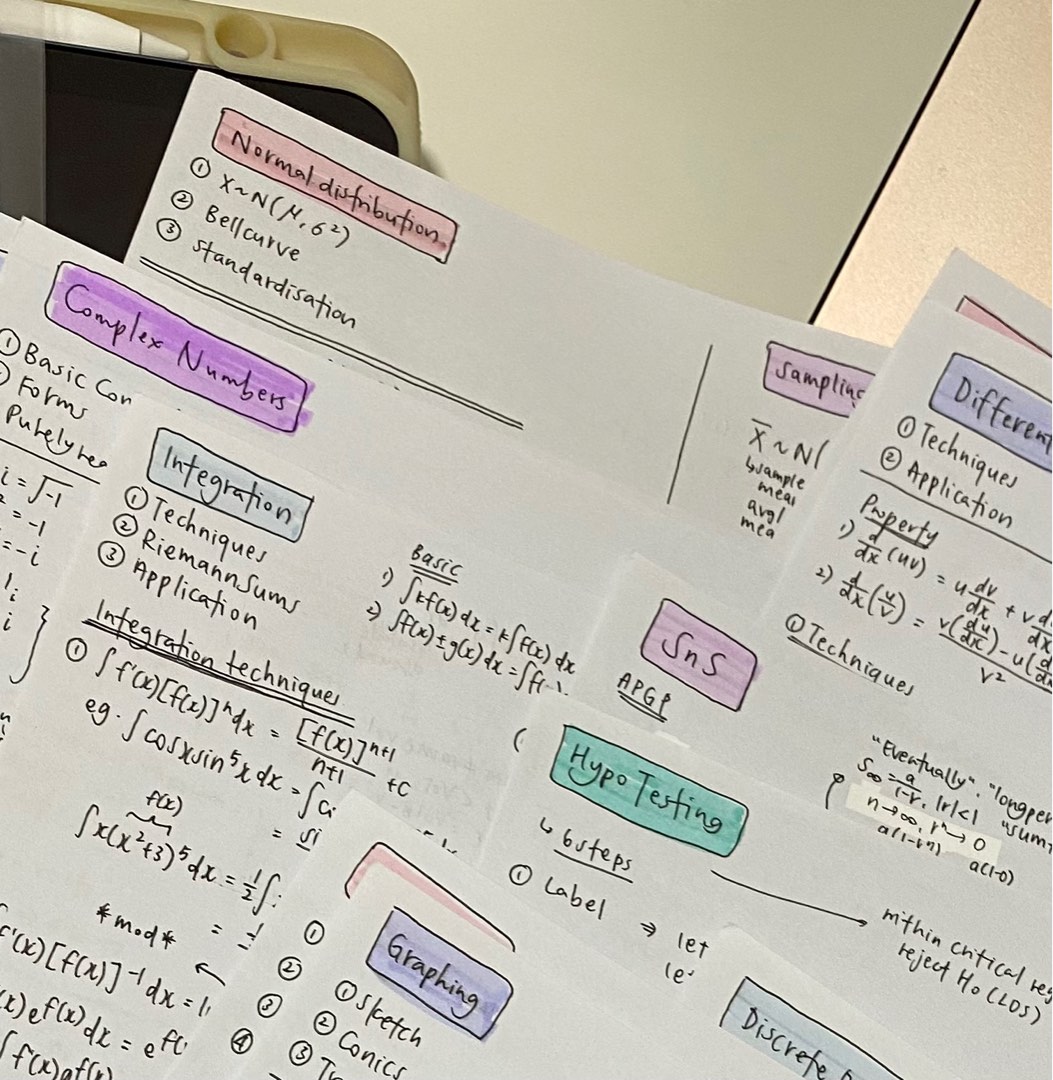 Normal distribution
① X~N(μ, σ²)
② Bellcurve
③ standardisation
Complex Numbers
① Basic Con
Forms
Purely rea
i = √-1
² = -1
= -i
Integration
① Techniques
② Riemann Sums
③ Application
Integration techniques
① ∫f'(x)[f(x)]ⁿdx = [f(x)]ⁿ⁺¹/n+1 +c
eg. ∫cosxsin⁵x dx = ∫c
f(x)
∫x(x²+3)⁵dx = 1/2∫
*mod*
f'(x)[f(x)]⁻¹dx =
(x)e^f(x)dx = e^f(
∫f'(x)af(x)
Basic
1) ∫kf(x)dx = k∫f(x)dx
2) ∫f(x)±g(x)dx = ∫f(
Sampling
X̄~N(
↳sample
mea
avg/
mea
Different
① Techniques
② Application
Property
1) d/dx(uv) = u dv/dx + v d
2) d/dx(u/v) = v(du/dx)-u(d
v²
① Techniques
SnS
APGP
"Eventually", "longter
S∞ = a/1-r, |r|<1 "sum
n→∞, rⁿ→0
a(1-rⁿ) a(1-0)
Hypo Testing
↳ 6 steps
① Label ⇒ let
le
within critical reg
reject H₀ (LOS)
①
②
③
④
Graphing
① Sketch
② Conics
③ Tr
Discrete